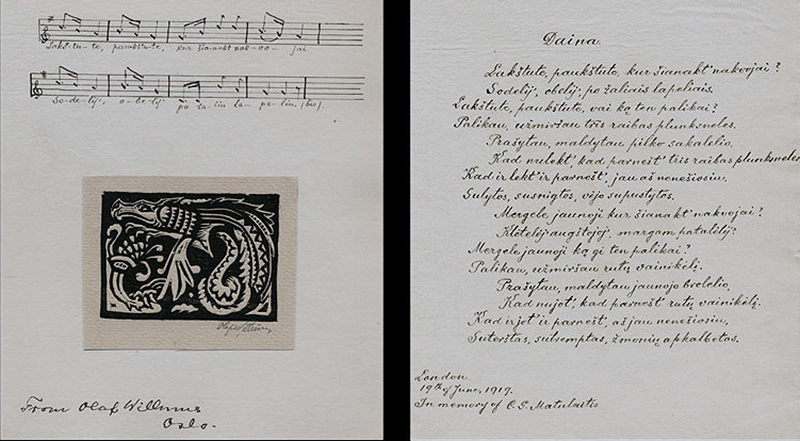 Lakš-tu-te, paukštu-te, kur šianakt nak-vo-jai
So-de-lij, o-be-lij po ža-liu la-pe-liu (bis).
From Olaf Willums
Oslo.
Daina.
Lakštute, paukštute, kur šianakt' nakvojai?
Sodelij, obelij, po žaliais lapeliais.
Lakštute, paukštute, vai ką ten palikai?
Palikau, užmiršau tris raibas plunksneles.
Prašytau, maldytau pilko sakalelio,
Kad nulekt' kad parnešt' tris raibas plunksneles
Kad ir lekt' ir parnešt', jau aš nenešiosiu,
Sulytos, susnigtos, vėjo supustytos.
Mergele jaunoji kur šianakt' nakvojai?
Klėtelėj augštojoj, margam patalėlij?
Mergele jaunoji ką gi ten palikai?
Palikau, užmiršau rutų vainikėlį.
Prašytau, maldytau jaunojo brolelio,
Kad nujot', kad parnešt' rutų vainikėlį.
Kad ir jot' ir parnešt', aš jau nenešiosiu,
Suterštas, sutremptas, žmonių apkalbėtas.
London.
19th of June, 1919.
In memory of